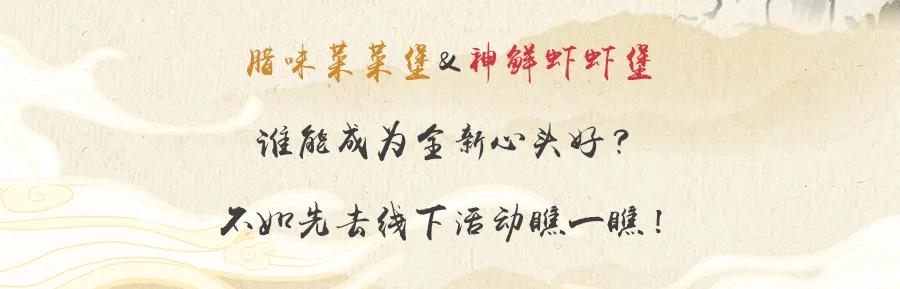 腊味菜菜堡&神鲜虾虾堡
谁能成为全新心头好？
不如先去线下活动瞧一瞧！